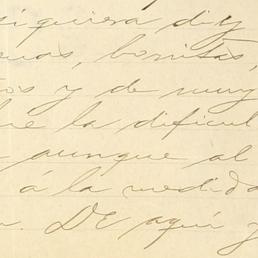 siquiera di y
buenas, bonitas,
os y de muy
bre la dificul
aunque al
á la medida
. De aquí y